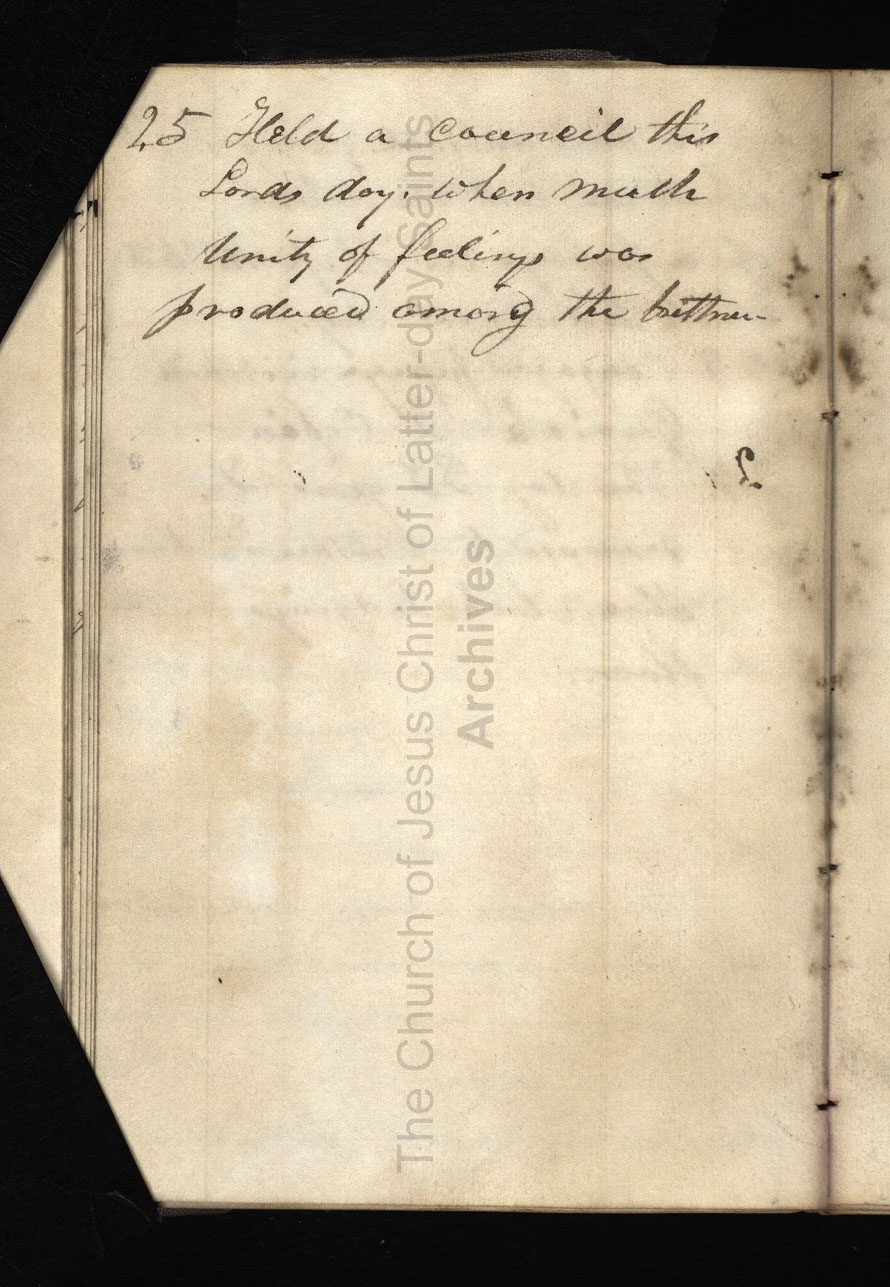 25 Held a Council this
Lords day. when much
Unity of feelings was
produced among the brethren
The Church of Jesus Christ of Latter-day Saints
Archives